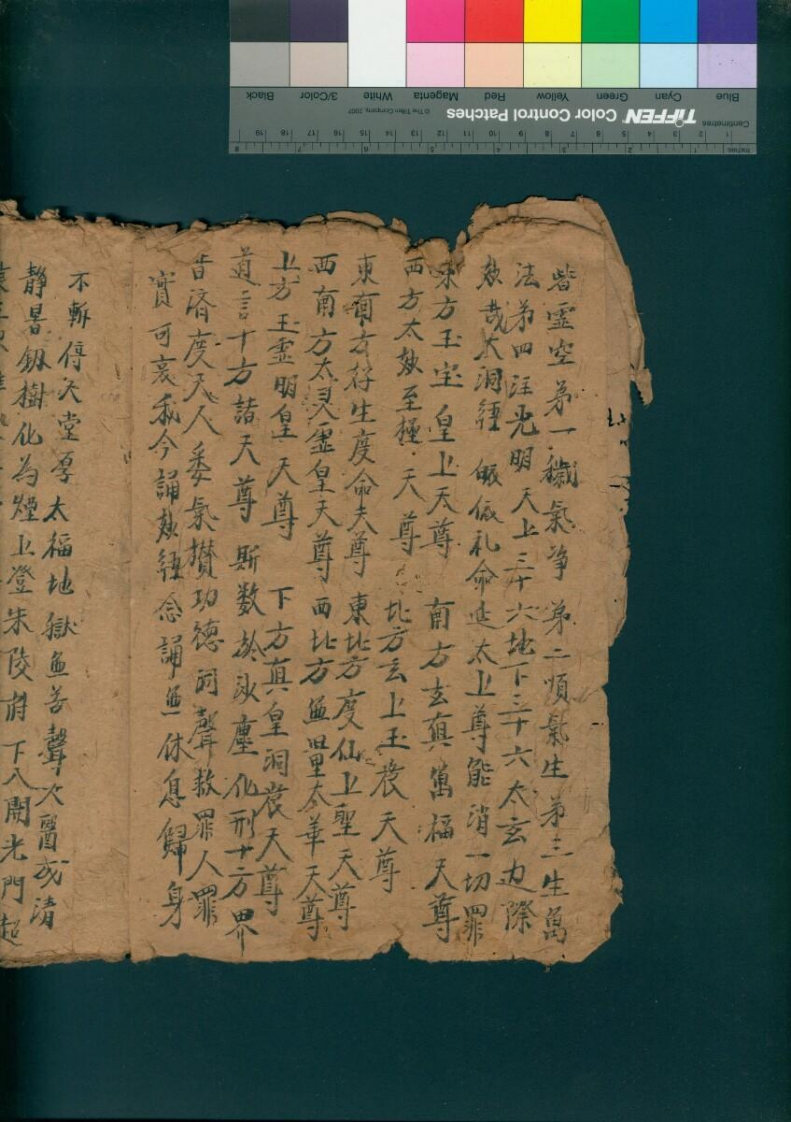 皆霊空 第一穢氣净 第二順氣生 第三生萬
法第四註光明 天上三十六 地下三十六 太玄边際
妙哉大洞經 皈依礼命進 太上尊能消一切罪
東方玉宝皇上天尊 南方玄真萬福天尊
西方太妙至極天尊 北方玄上玉宸天尊
東南方好生度命天尊 東北方度仙上聖天尊
西南方太灵虚皇天尊 西北方無量太華天尊
上方玉霊明皇天尊 下方真皇洞宸天尊
道言十方諸天尊 斯数於沙塵 化刑十方界
昔濟度天人 委氣攢功德 同聲救罪人 罪
實可哀 我今誦妙經 念誦無休息 歸身
不暫停 天堂享太福 地獄無苦聲 火醫成清
静暑 劔樹化為煙 上登朱陵府 下入開光門 超
Blue Cyan Green Yellow Red Magenta White 3/Color Black
TIFFEN Color Control Patches
© The Tiffen Company, 2007
Centimetres
Inches